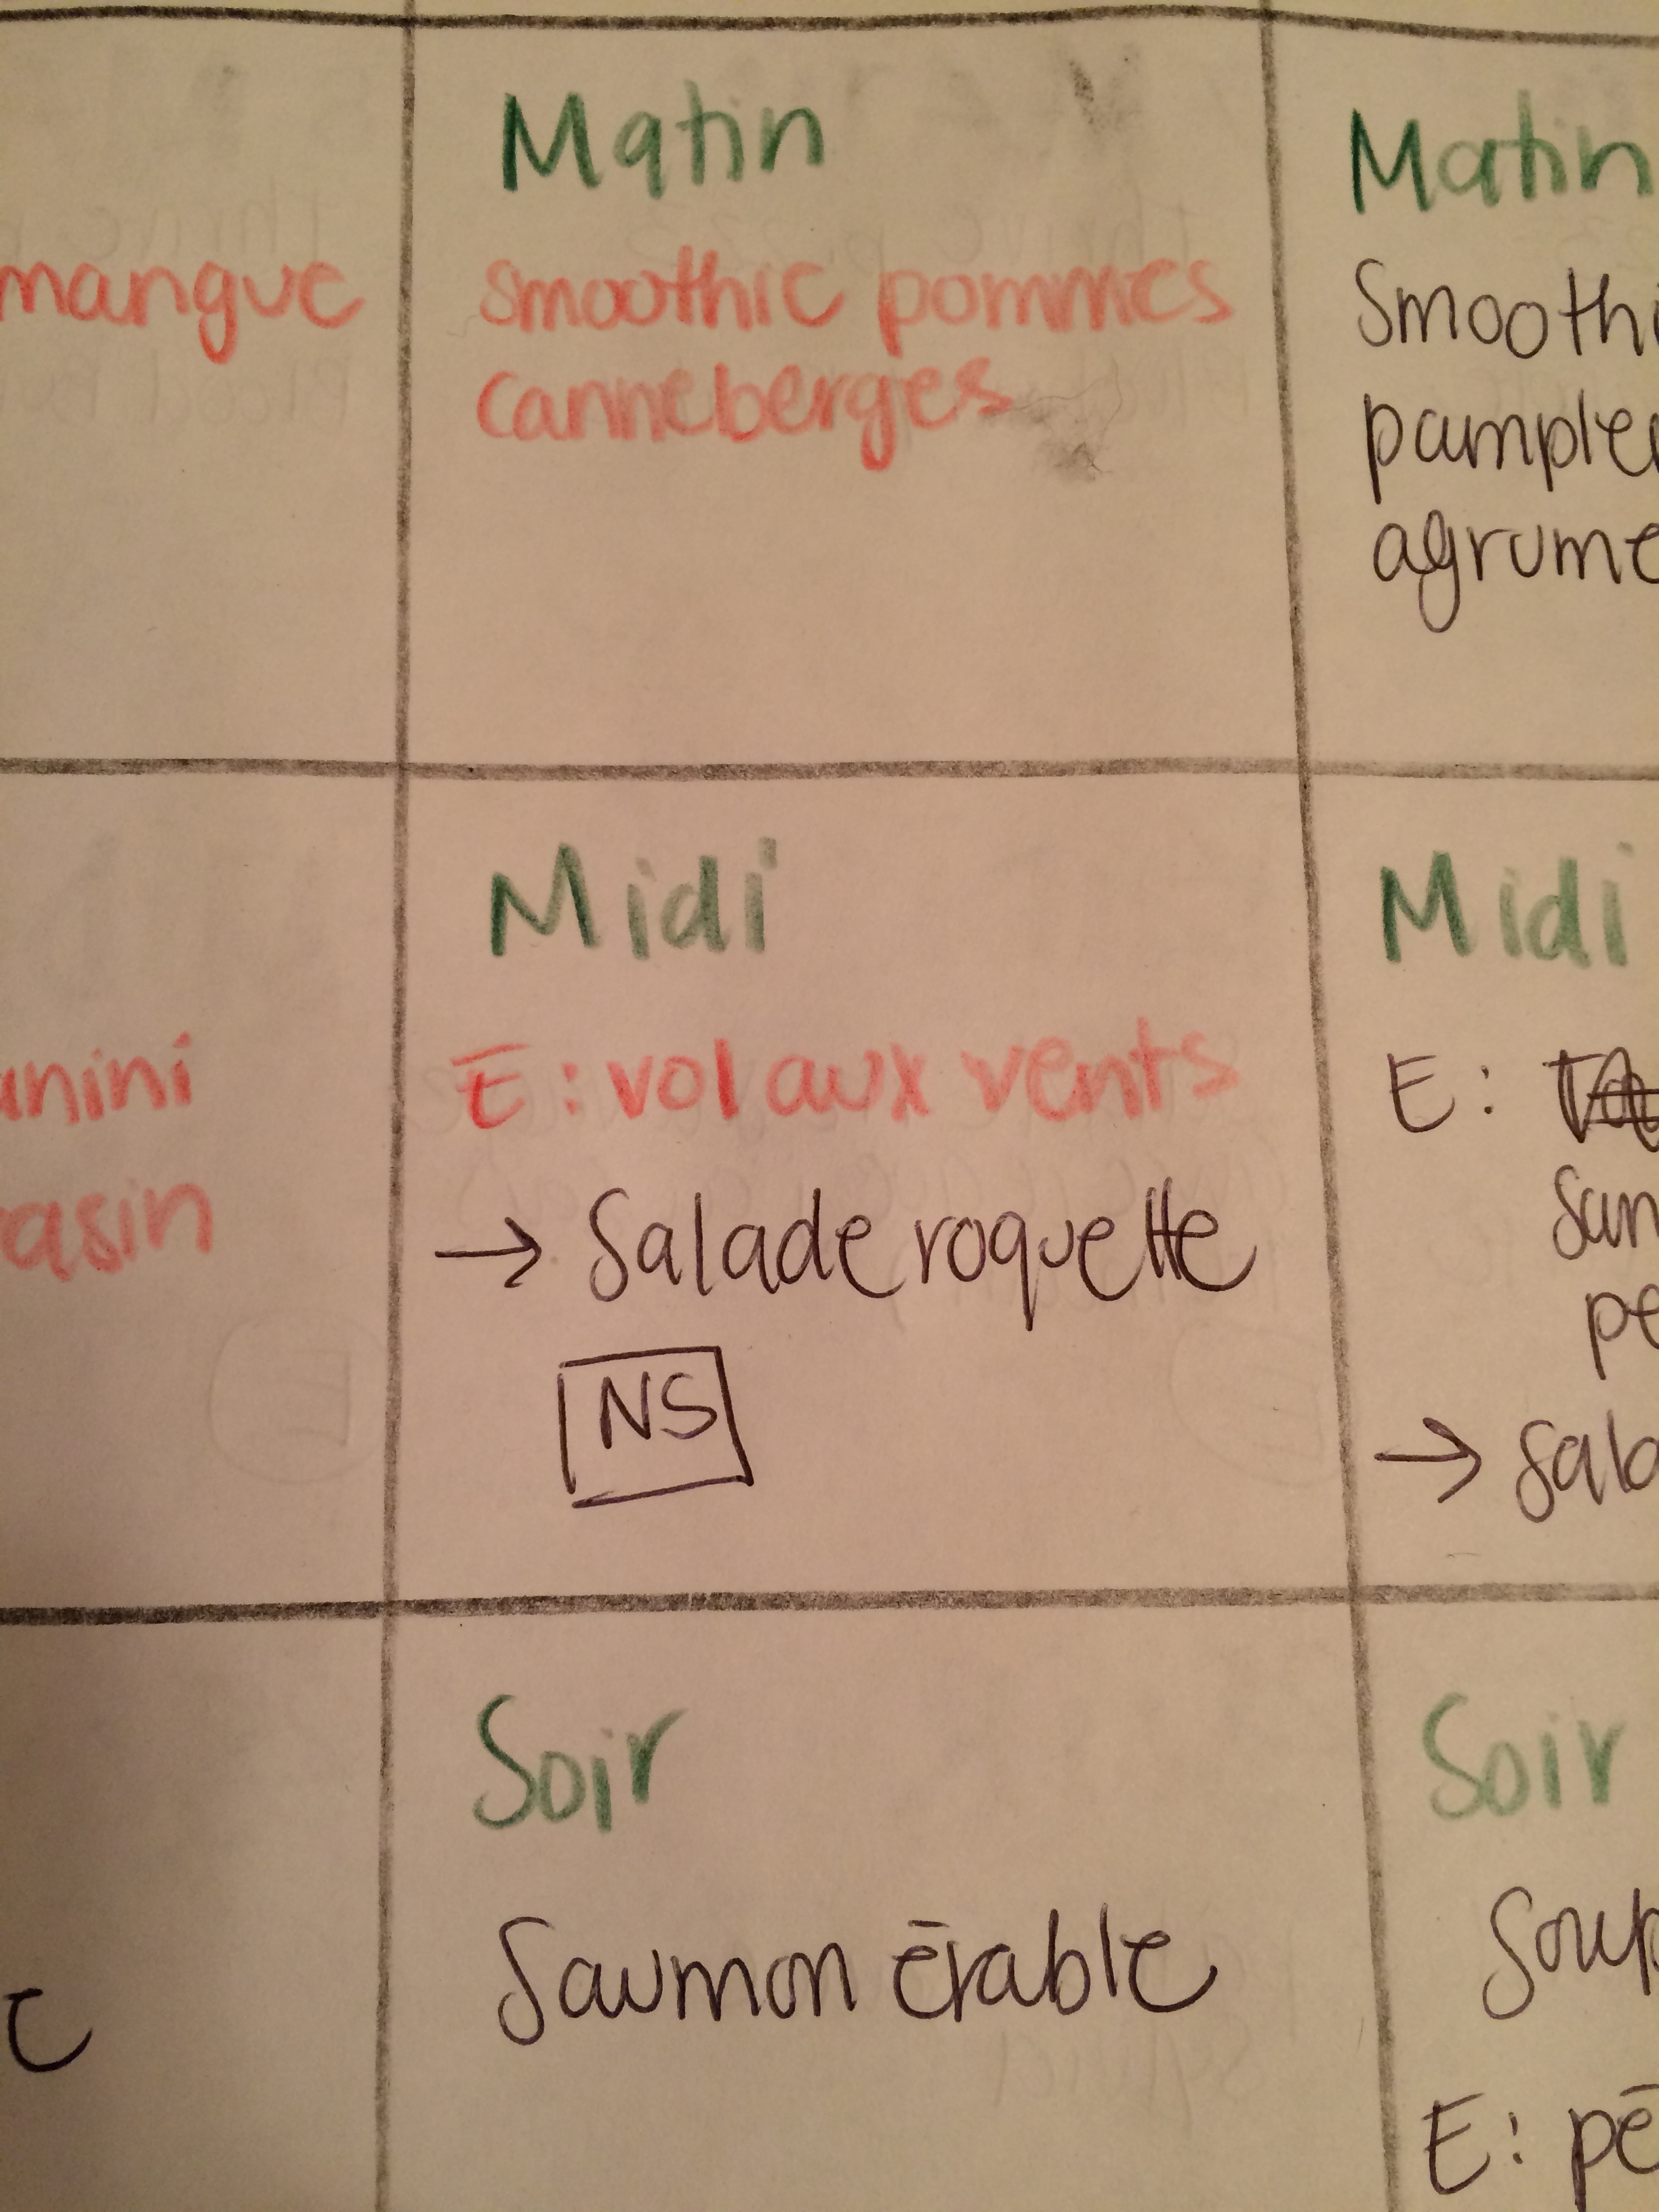 Matin
smoothie pommes
canneberges
Midi
E: vol aux vents
→ Salade roquette
NS
Soir
Saumon érable
mangue
Matin
Smoothi
pample
agrume
Midi
E:
San
pe
→ Sala
Soir
Soup
E: pé
anini
asin